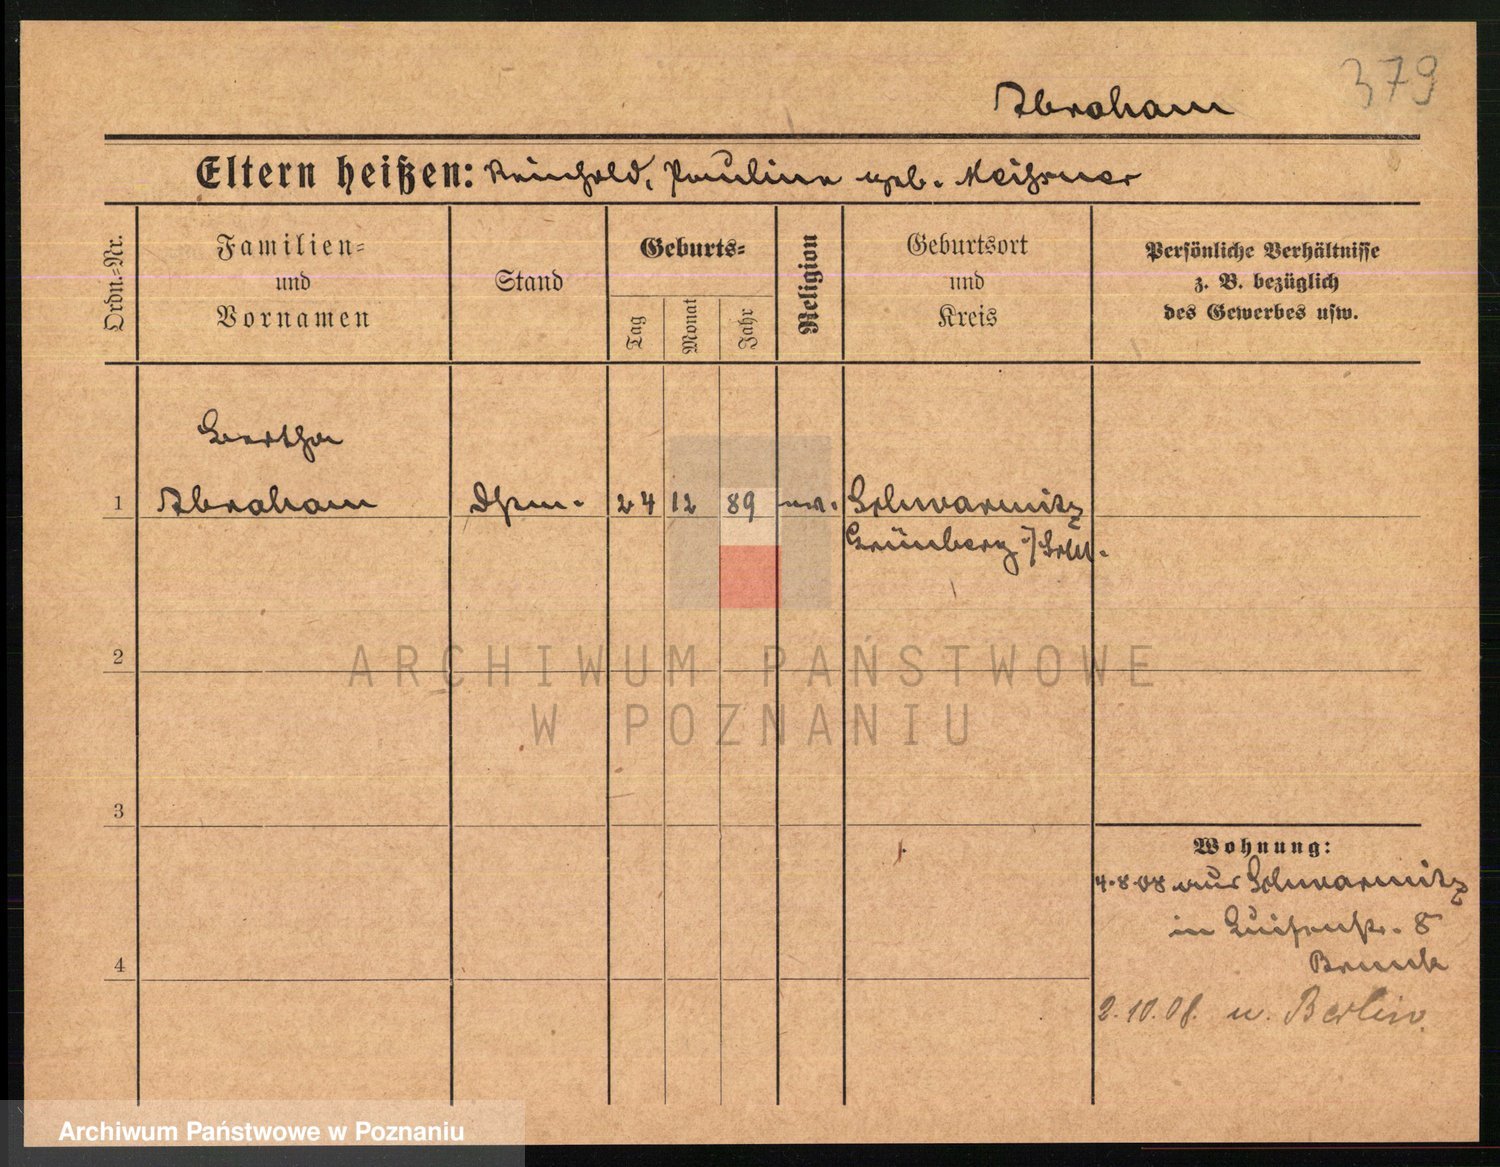 379
Abraham
Eltern heißen: Reinhold, Pauline geb. Meißner
Ordn.=Nr.
Familien=
und
Vornamen
Stand
Geburts=
Tag
Monat
Jahr
Religion
Geburtsort
und
Kreis
Persönliche Verhältnisse
z. B. bezüglich
des Gewerbes usw.
Bertha
1 Abraham 24 12 89 ev. Schwarmitz
Grünberg i/Schl.
2
ARCHIWUM PAŃSTWOWE
W POZNANIU
3
Wohnung:
4.8.08 aus Schwarmitz
in Luisenstr. 8
2.10.08. n. Berlin.
4
Archiwum Państwowe w Poznaniu